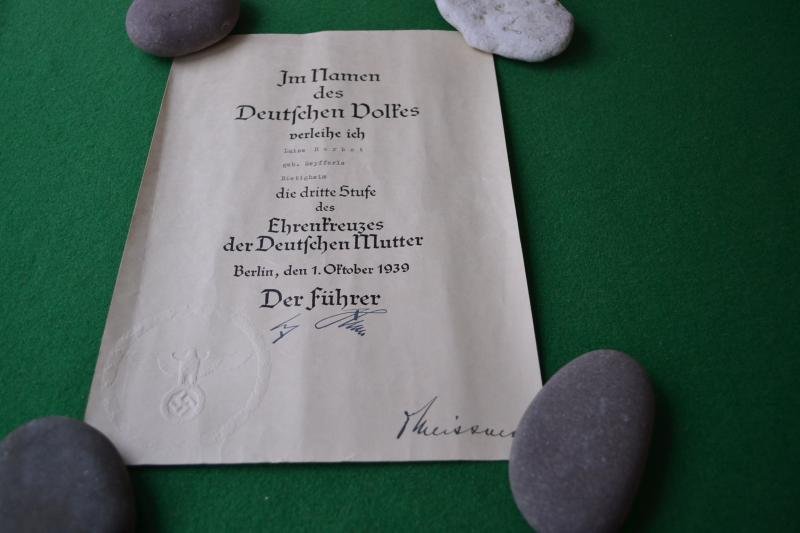 Im Namen
des
Deutschen Volkes
verleihe ich
Luise Herbst
geb. Seyfferle
Bietigheim
die dritte Stufe
des
Ehrenkreuzes
der Deutschen Mutter
Berlin, den 1. Oktober 1939
Der Führer
Meissner